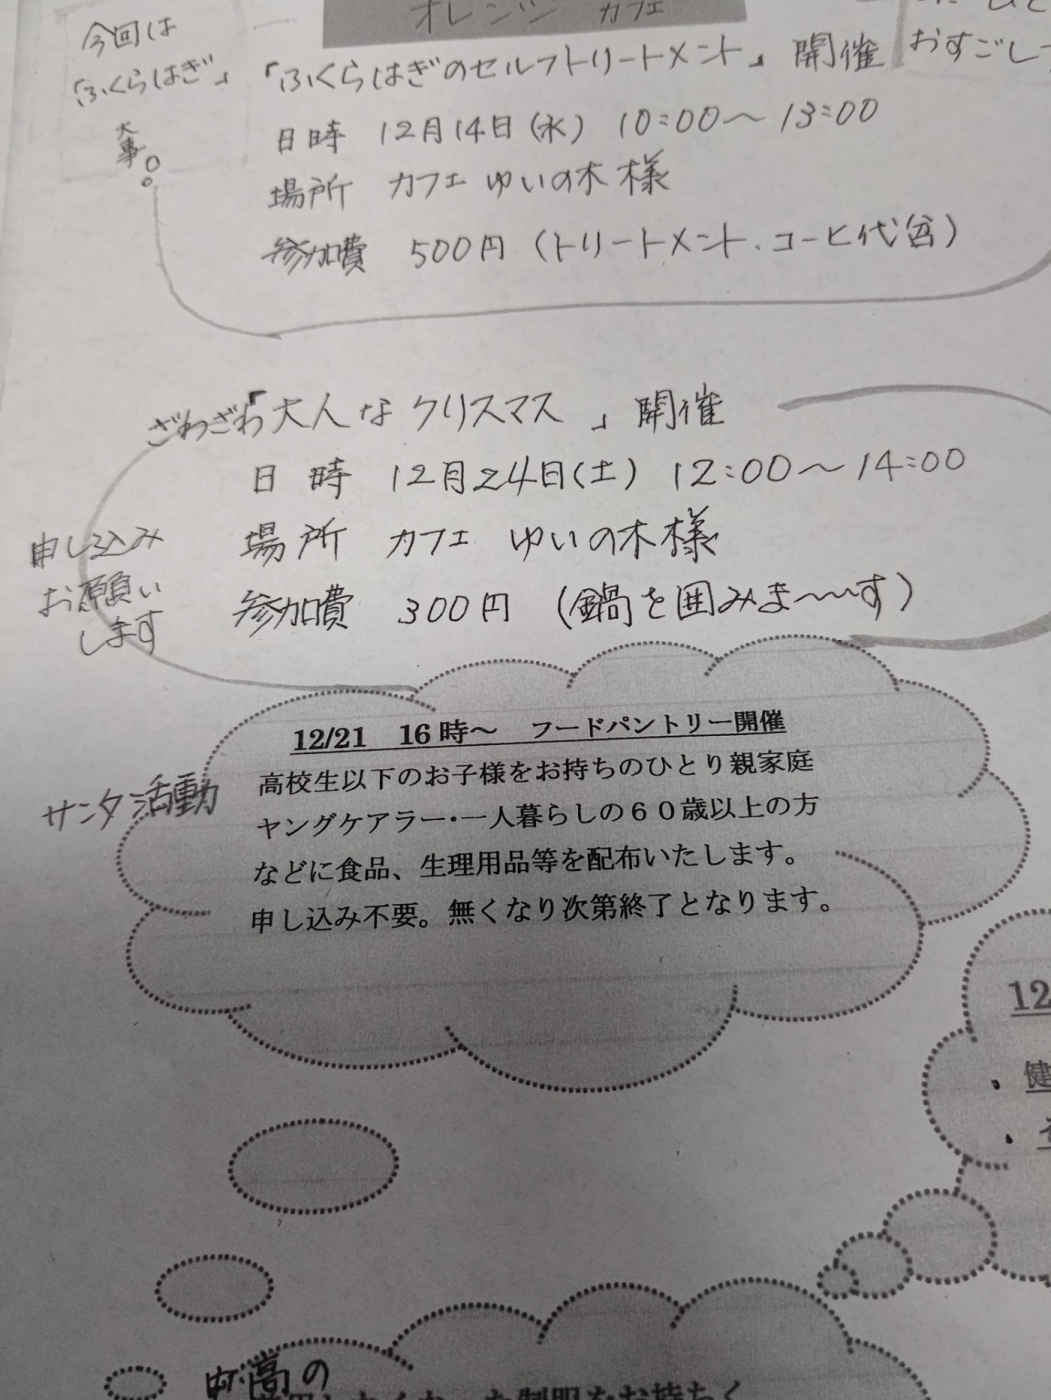 オレンジ カフェ
今回は
「ふくらはぎ」
大事。
おすごし
「ふくらはぎのセルフトリートメント」 開催
日時 12月14日(水) 10:00〜13:00
場所 カフェ ゆいの木様
参加費 500円 (トリートメント、コーヒ代含)
ざわざわ「大人な クリスマス 」開催
日時 12月24日(土) 12:00〜14:00
場所 カフェ ゆいの木様
参加費 300円 (鍋を囲みま〜〜す)
申し込み
お願い
します
サンタ活動
12/21 16時〜 フードパントリー開催
高校生以下のお子様をお持ちのひとり親家庭
ヤングケアラー・一人暮らしの60歳以上の方
などに食品、生理用品等を配布いたします。
申し込み不要。無くなり次第終了となります。
12
健